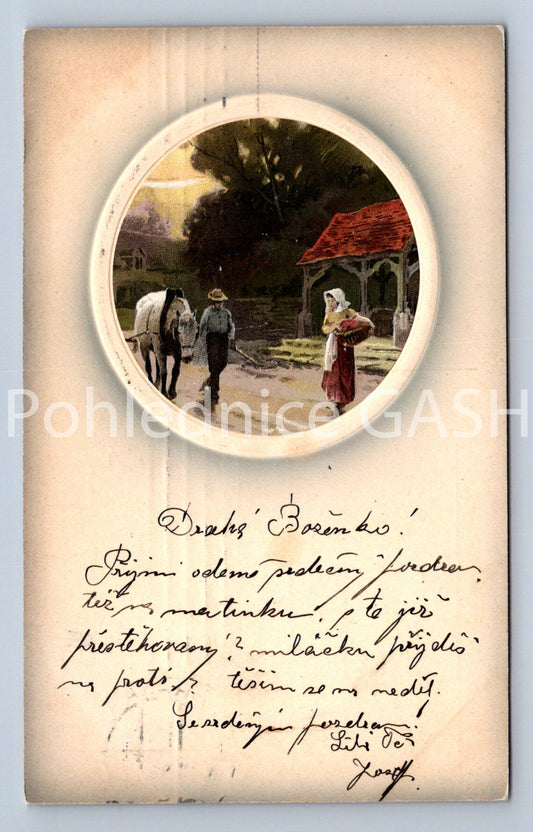 Pohlednice GASH
Drahá Boženko!
Přijmi odemě srdečný pozdrav,
též na matinku, s te již
přestěhovaný? miláčku přijdeš
na proti? těším se na neděl.
Se srdečným pozdravem!
Líbá Tě
Josef